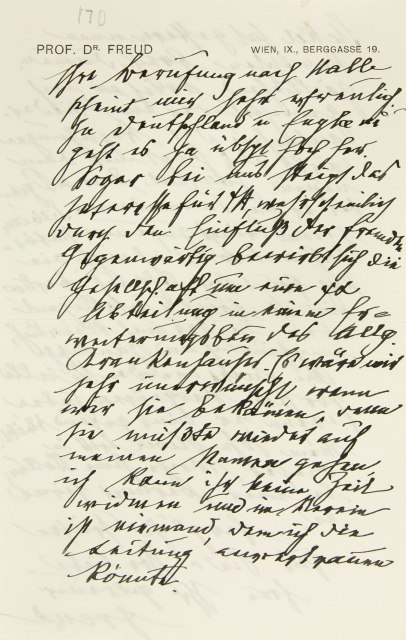 170
PROF. DR. FREUD WIEN, IX., BERGGASSE 19.
Ihre Berufung nach Halle
scheint mir sehr erfreulich.
In Deutschland u
geht es ja übhpt hoch her.
Sogar bei uns steigt das
Interesse für ΨA, wahrscheinlich
durch den Einfluß der Fremden
Gegenwärtig bewirbt sich die
Gesellschaft um eine ΨA
Abteilung in einem Er=
weiterungsbau des Allg.
Krankenhauses. Es wäre mir
sehr unerwünscht, wenn
wir sie bekämen, denn
sie müßte wieder auf
meinen Namen gehen,
ich kann ihr keine Zeit
widmen und im Verein
ist niemand, dem ich die
Leitung anvertrauen
könnte.